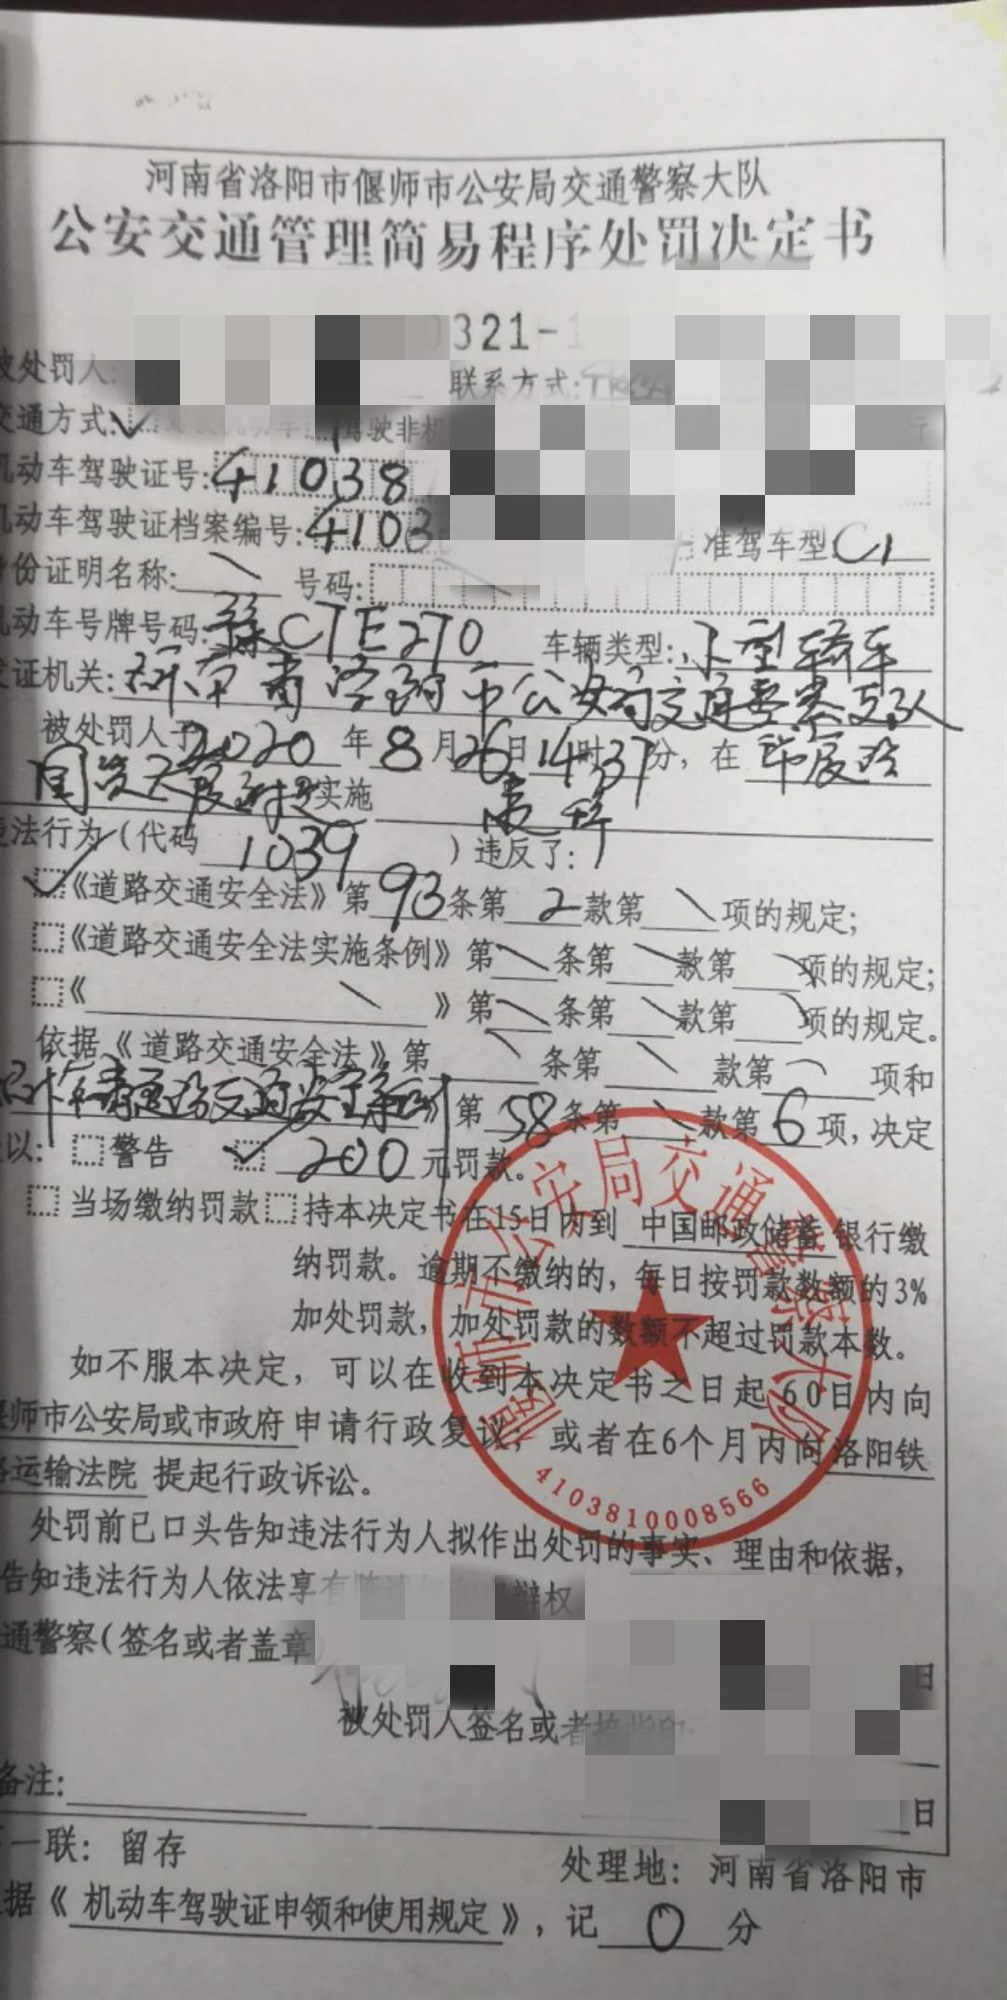 河南省洛阳市偃师市公安局交通警察大队
公安交通管理简易程序处罚决定书
0321-1
被处罚人:
联系方式:
交通方式: 驾驶非机
机动车驾驶证号: 41038
机动车驾驶证档案编号: 4103 准驾车型 C1
身份证明名称: 号码:
机动车号牌号码: 豫CTE270 车辆类型: 小型轿车
发证机关: 河南省洛阳市公安局交通警察支队
被处罚人于 2020 年 8 月 26 日 14 时 37 分, 在
实施
违法行为 (代码 1039 ) 违反了:
《道路交通安全法》第 93 条第 2 款第 项的规定;
《道路交通安全法实施条例》第 条第 款第 项的规定;
《 》第 条第 款第 项的规定。
依据《道路交通安全法》第 条第 款第 项和
道路交通安全条例》第 58 条第 款第 6 项, 决定
以: 警告 200 元罚款。
当场缴纳罚款 持本决定书在15日内到 中国邮政储蓄 银行缴
纳罚款。逾期不缴纳的, 每日按罚款数额的3%
加处罚款, 加处罚款的数额不超过罚款本数。
如不服本决定, 可以在收到本决定书之日起60日内向
偃师市公安局或市政府 申请行政复议; 或者在6个月内向 洛阳铁
路运输法院 提起行政诉讼。
偃师市公安局交通警察大队
4103810008566
处罚前已口头告知违法行为人拟作出处罚的事实、理由和依据,
告知违法行为人依法享有 辩权
通警察(签名或者盖章)
日
被处罚人签名或者
备注:
日
一联: 留存
处理地: 河南省洛阳市
据《 机动车驾驶证申领和使用规定 》, 记 0 分